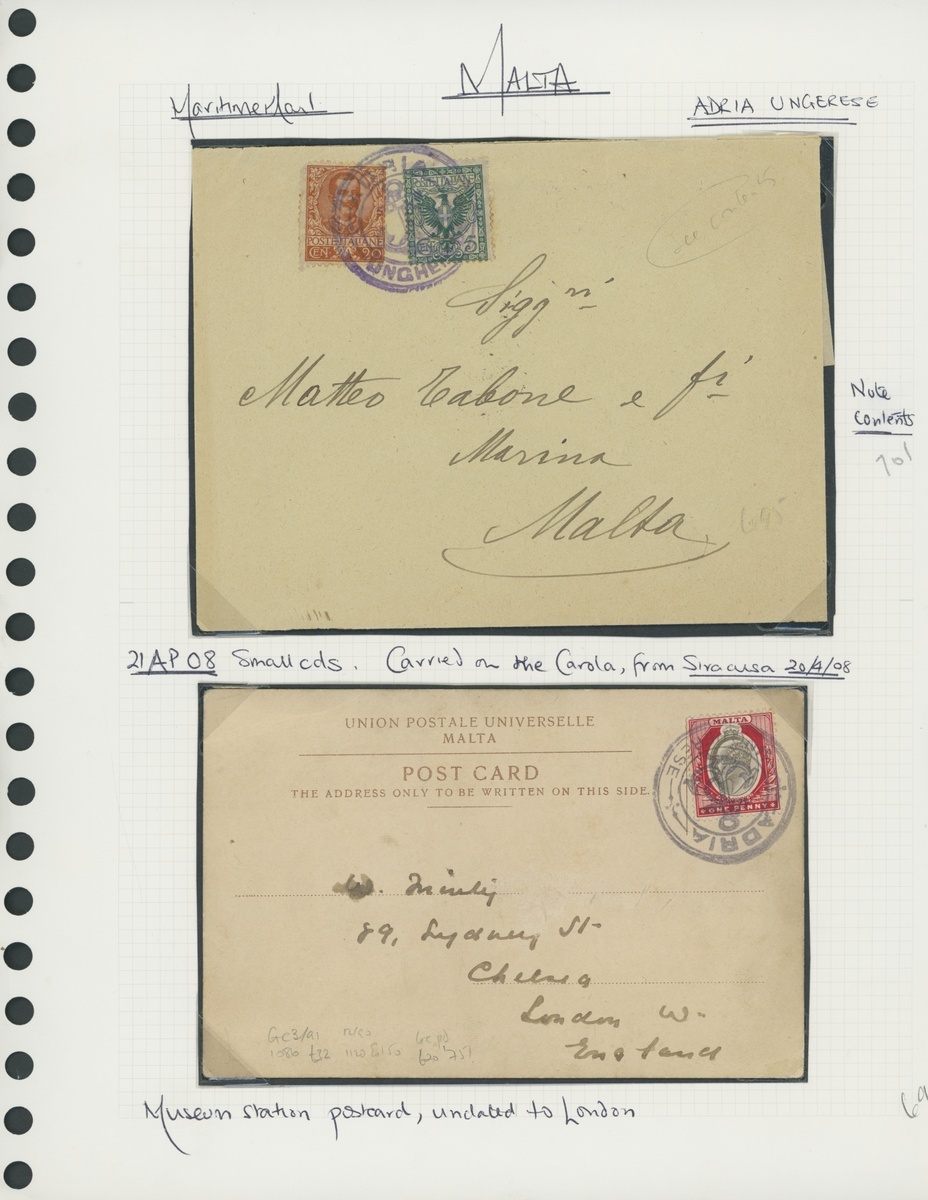 MALTA
Maritime Mail
ADRIA UNGERESE
POSTE ITALIANE
CENT. 20
POSTE ITALIANE
5
UNGHE
see contents
Sigg ri
Matteo Tabone e fi
Marina
Malta
Note
Contents
21 AP 08 Small cds. Carried on the Carola, from Siracusa 20/4/08
UNION POSTALE UNIVERSELLE
MALTA
POST CARD
THE ADDRESS ONLY TO BE WRITTEN ON THIS SIDE.
MALTA
ONE PENNY
ADRIA
ESE
W.
89, Sydney St.
Chelsea
London W.
England
Museum station postcard, undated to London